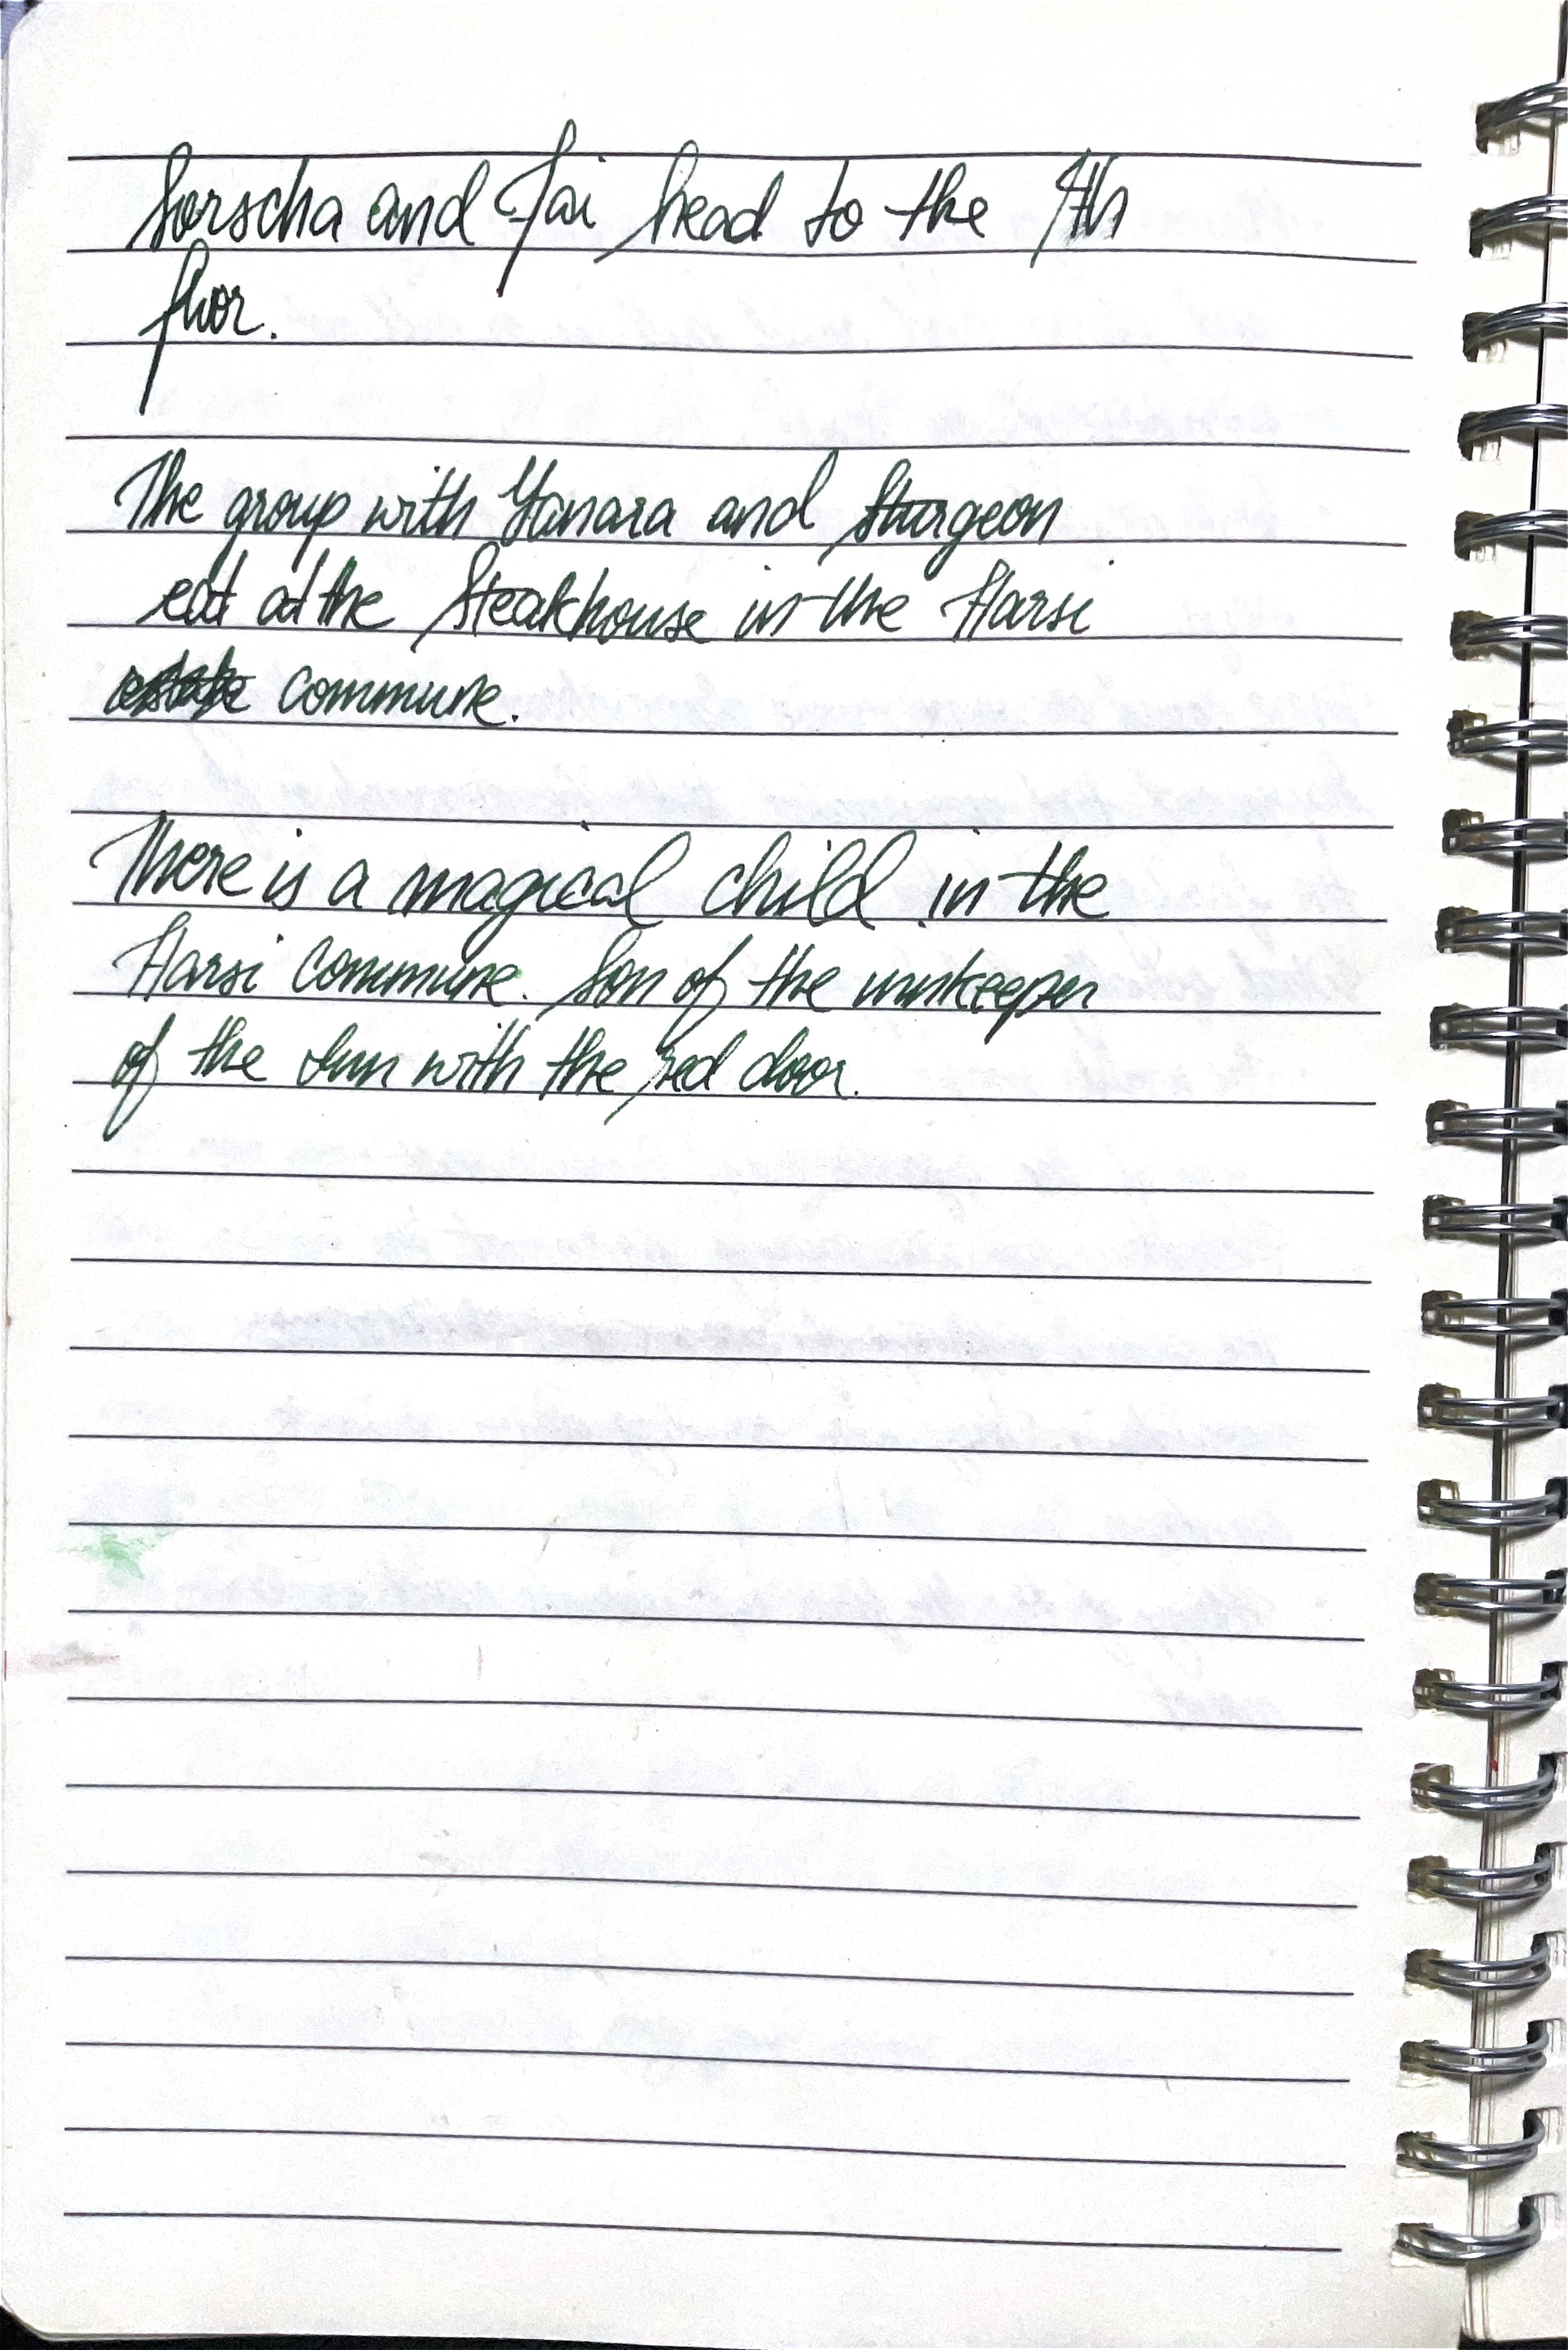 Sorscha and Jai head to the 7th
floor.
The group with Yanara and Sturgeon
eat at the Steakhouse in the Harsi
commune.
There is a magical child in the
Harsi commune. Son of the innkeeper
of the Inn with the red door.